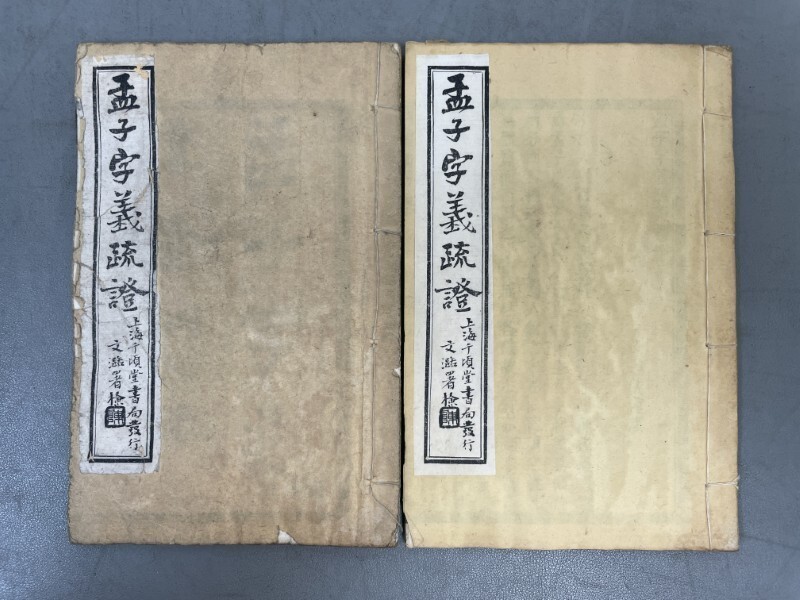 孟子字義疏證
上海千頃堂書局發行
文澂署檢
孟子字義疏證
上海千頃堂書局發行
文澂署檢